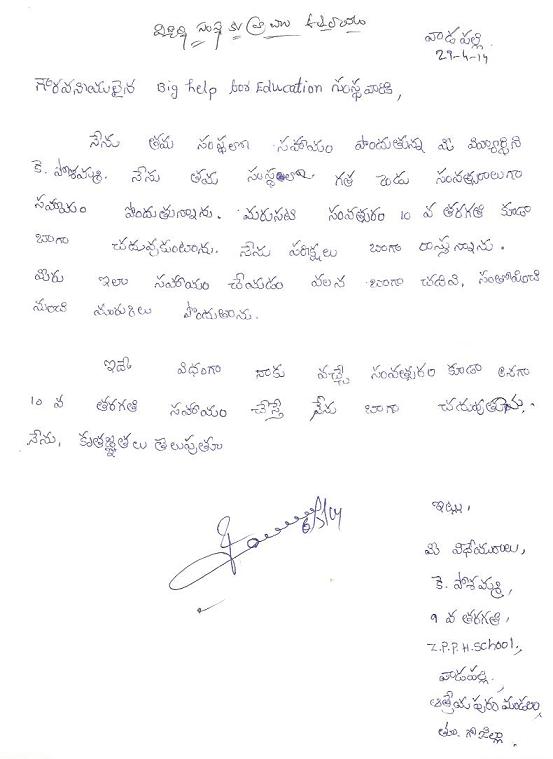 విద్యార్థి సంస్థ కు వ్రాయు ఉత్తరాయం
వాడపల్లి.
29-4-14
గౌరవనీయులైన Big help for Education సంస్థవారికి,
నేను తమ సంస్థలో సహాయం పొందుతున్న మీ విద్యార్థిని
కె. పోశమ్మ. నేను తమ సంస్థలో గత రెండు సంవత్సరాలుగా
సహాయం పొందుతున్నాను. మరుసటి సంవత్సరం 10 వ తరగతి కూడా
బాగా చదువుకుంటాను. నేను పరీక్షలు బాగా రాస్తున్నాను.
మీరు ఇలా సహాయం చేయడం వలన బాగా చదివి,
మంచి మార్కులు పొందుతాను.
ఇదే విధంగా నాకు వచ్చే సంవత్సరం కూడా అనగా
10 వ తరగతి సహాయం చేస్తే నేను బాగా చదువుతాను.
నేను, కృతజ్ఞతలు తెలుపుతూ
ఇట్లు,
మీ విధేయురాలు,
కె. పోశమ్మ,
9 వ తరగతి,
Z.P.P.H.School,
వాడపల్లి.,
ఆత్రేయపురం మండలం,
తూ.గో జిల్లా.